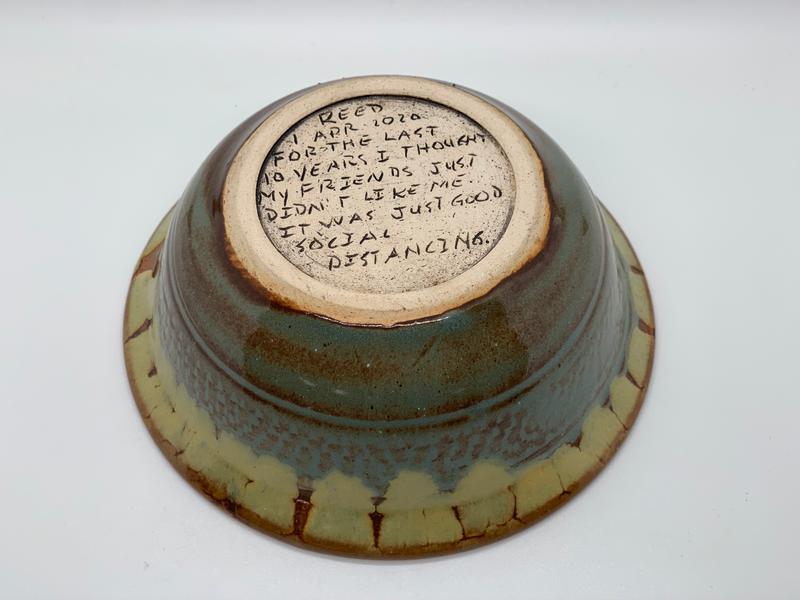 REED
1 APR 2020
FOR THE LAST
10 YEARS I THOUGHT
MY FRIENDS JUST
DIDN'T LIKE ME
IT WAS JUST GOOD
SOCIAL
DISTANCING.